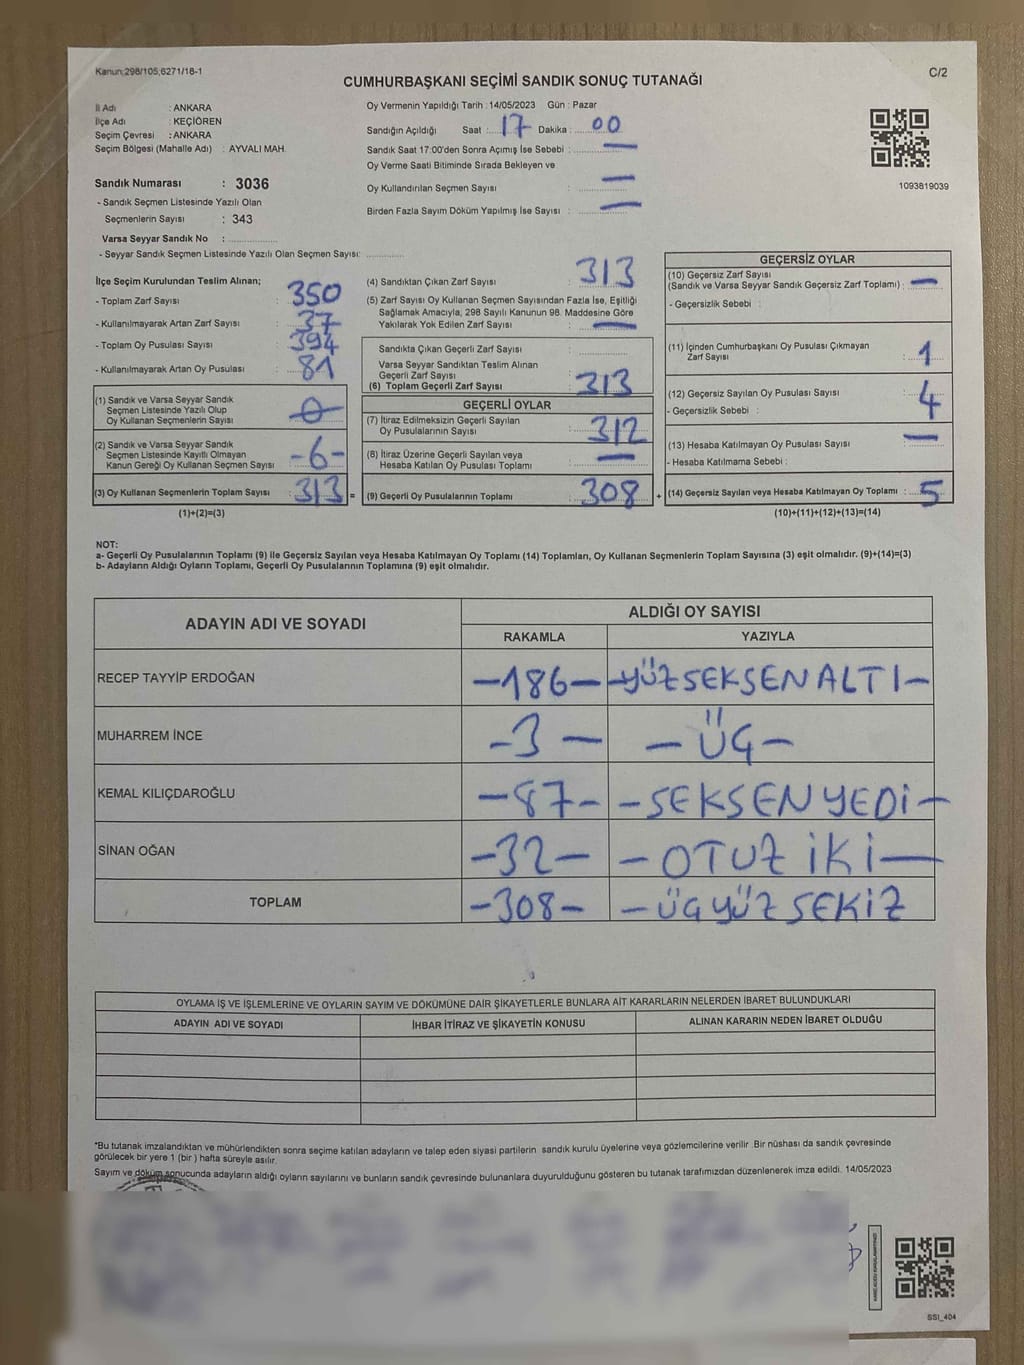 Kanun:298/105,6271/18-1
C/2
CUMHURBAŞKANI SEÇİMİ SANDIK SONUÇ TUTANAĞI
İl Adı : ANKARA
İlçe Adı : KEÇİÖREN
Seçim Çevresi : ANKARA
Seçim Bölgesi (Mahalle Adı) : AYVALI MAH.
Sandık Numarası : 3036
- Sandık Seçmen Listesinde Yazılı Olan
Seçmenlerin Sayısı : 343
Varsa Seyyar Sandık No :
- Seyyar Sandık Seçmen Listesinde Yazılı Olan Seçmen Sayısı:
Oy Vermenin Yapıldığı Tarih : 14/05/2023 Gün : Pazar
Sandığın Açıldığı Saat : 17 Dakika : 00
Sandık Saat 17:00'den Sonra Açımış İse Sebebi : —
Oy Verme Saati Bitiminde Sırada Bekleyen ve
Oy Kullandırılan Seçmen Sayısı : —
Birden Fazla Sayım Döküm Yapılmış İse Sayısı : —
1093819039
İlçe Seçim Kurulundan Teslim Alınan;
- Toplam Zarf Sayısı : 350
- Kullanılmayarak Artan Zarf Sayısı : 37
- Toplam Oy Pusulası Sayısı : 394
- Kullanılmayarak Artan Oy Pusulası : 81
(1) Sandık ve Varsa Seyyar Sandık
Seçmen Listesinde Yazılı Olup
Oy Kullanan Seçmenlerin Sayısı :
(2) Sandık ve Varsa Seyyar Sandık
Seçmen Listesinde Kayıtlı Olmayan
Kanun Gereği Oy Kullanan Seçmen Sayısı : -6-
(3) Oy Kullanan Seçmenlerin Toplam Sayısı : 313 =
(1)+(2)=(3)
(4) Sandıktan Çıkan Zarf Sayısı : 313
(5) Zarf Sayısı Oy Kullanan Seçmen Sayısından Fazla İse, Eşitliği
Sağlamak Amacıyla, 298 Sayılı Kanunun 98. Maddesine Göre
Yakılarak Yok Edilen Zarf Sayısı : —
Sandıkta Çıkan Geçerli Zarf Sayısı :
Varsa Seyyar Sandıktan Teslim Alınan
Geçerli Zarf Sayısı :
(6) Toplam Geçerli Zarf Sayısı : 313
GEÇERLİ OYLAR
(7) İtiraz Edilmeksizin Geçerli Sayılan
Oy Pusulalarının Sayısı : 312
(8) İtiraz Üzerine Geçerli Sayılan veya
Hesaba Katılan Oy Pusulası Toplamı : —
(9) Geçerli Oy Pusulalarının Toplamı : 308 +
GEÇERSİZ OYLAR
(10) Geçersiz Zarf Sayısı
(Sandık ve Varsa Seyyar Sandık Geçersiz Zarf Toplamı) : —
- Geçersizlik Sebebi :
(11) İçinden Cumhurbaşkanı Oy Pusulası Çıkmayan
Zarf Sayısı : 1
(12) Geçersiz Sayılan Oy Pusulası Sayısı : 4
- Geçersizlik Sebebi :
(13) Hesaba Katılmayan Oy Pusulası Sayısı : —
- Hesaba Katılmama Sebebi :
(14) Geçersiz Sayılan veya Hesaba Katılmayan Oy Toplamı : 5
(10)+(11)+(12)+(13)=(14)
NOT:
a- Geçerli Oy Pusulalarının Toplamı (9) ile Geçersiz Sayılan veya Hesaba Katılmayan Oy Toplamı (14) Toplamları, Oy Kullanan Seçmenlerin Toplam Sayısına (3) eşit olmalıdır. (9)+(14)=(3)
b- Adayların Aldığı Oyların Toplamı, Geçerli Oy Pusulalarının Toplamına (9) eşit olmalıdır.
ADAYIN ADI VE SOYADI
ALDIĞI OY SAYISI
RAKAMLA YAZIYLA
RECEP TAYYİP ERDOĞAN —186— —YÜZSEKSENALTI—
MUHARREM İNCE -3— —ÜÇ—
KEMAL KILIÇDAROĞLU —87— —SEKSENYEDİ—
SİNAN OĞAN —32— —OTUZ İKİ—
TOPLAM —308— —ÜÇYÜZSEKİZ
OYLAMA İŞ VE İŞLEMLERİNE VE OYLARIN SAYIM VE DÖKÜMÜNE DAİR ŞİKAYETLERLE BUNLARA AİT KARARLARIN NELERDEN İBARET BULUNDUKLARI
ADAYIN ADI VE SOYADI İHBAR İTİRAZ VE ŞİKAYETİN KONUSU ALINAN KARARIN NEDEN İBARET OLDUĞU
*Bu tutanak imzalandıktan ve mühürlendikten sonra seçime katılan adayların ve talep eden siyasi partilerin sandık kurulu üyelerine veya gözlemcilerine verilir .Bir nüshası da sandık çevresinde
görülecek bir yere 1 (bir ) hafta süreyle asılır.
Sayım ve döküm sonucunda adayların aldığı oyların sayılarını ve bunların sandık çevresinde bulunanlara duyurulduğunu gösteren bu tutanak tarafımızdan düzenlenerek imza edildi. 14/05/2023
SSI_404